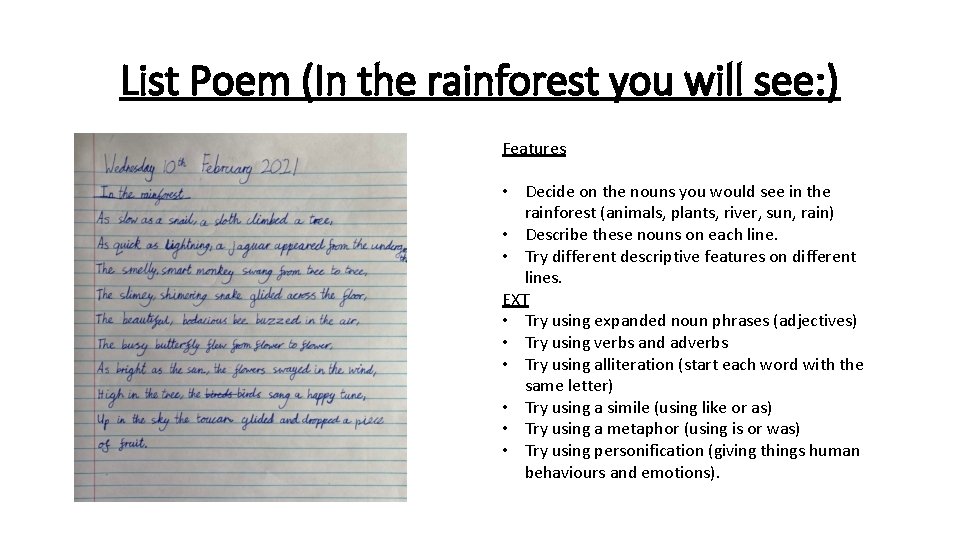 List Poem (In the rainforest you will see:)
Wednesday 10th February 2021
In the rainforest
As slow as a snail, a sloth climbed a tree,
As quick as lightning, a jaguar appeared from the
The smelly, smart monkey swang from tree to tree,
The slimey, shimering snake glided across the floor,
The beautiful, bodacious bee buzzed in the air,
The busy butterfly flew from flower to flower,
As bright as the sun, the flowers swayed in the wind,
High in the tree, the bireds birds sang a happy tune,
Up in the sky the toucan glided and dropped a piece
of fruit.
Features
• Decide on the nouns you would see in the
rainforest (animals, plants, river, sun, rain)
• Describe these nouns on each line.
• Try different descriptive features on different
lines.
EXT
• Try using expanded noun phrases (adjectives)
• Try using verbs and adverbs
• Try using alliteration (start each word with the
same letter)
• Try using a simile (using like or as)
• Try using a metaphor (using is or was)
• Try using personification (giving things human
behaviours and emotions).